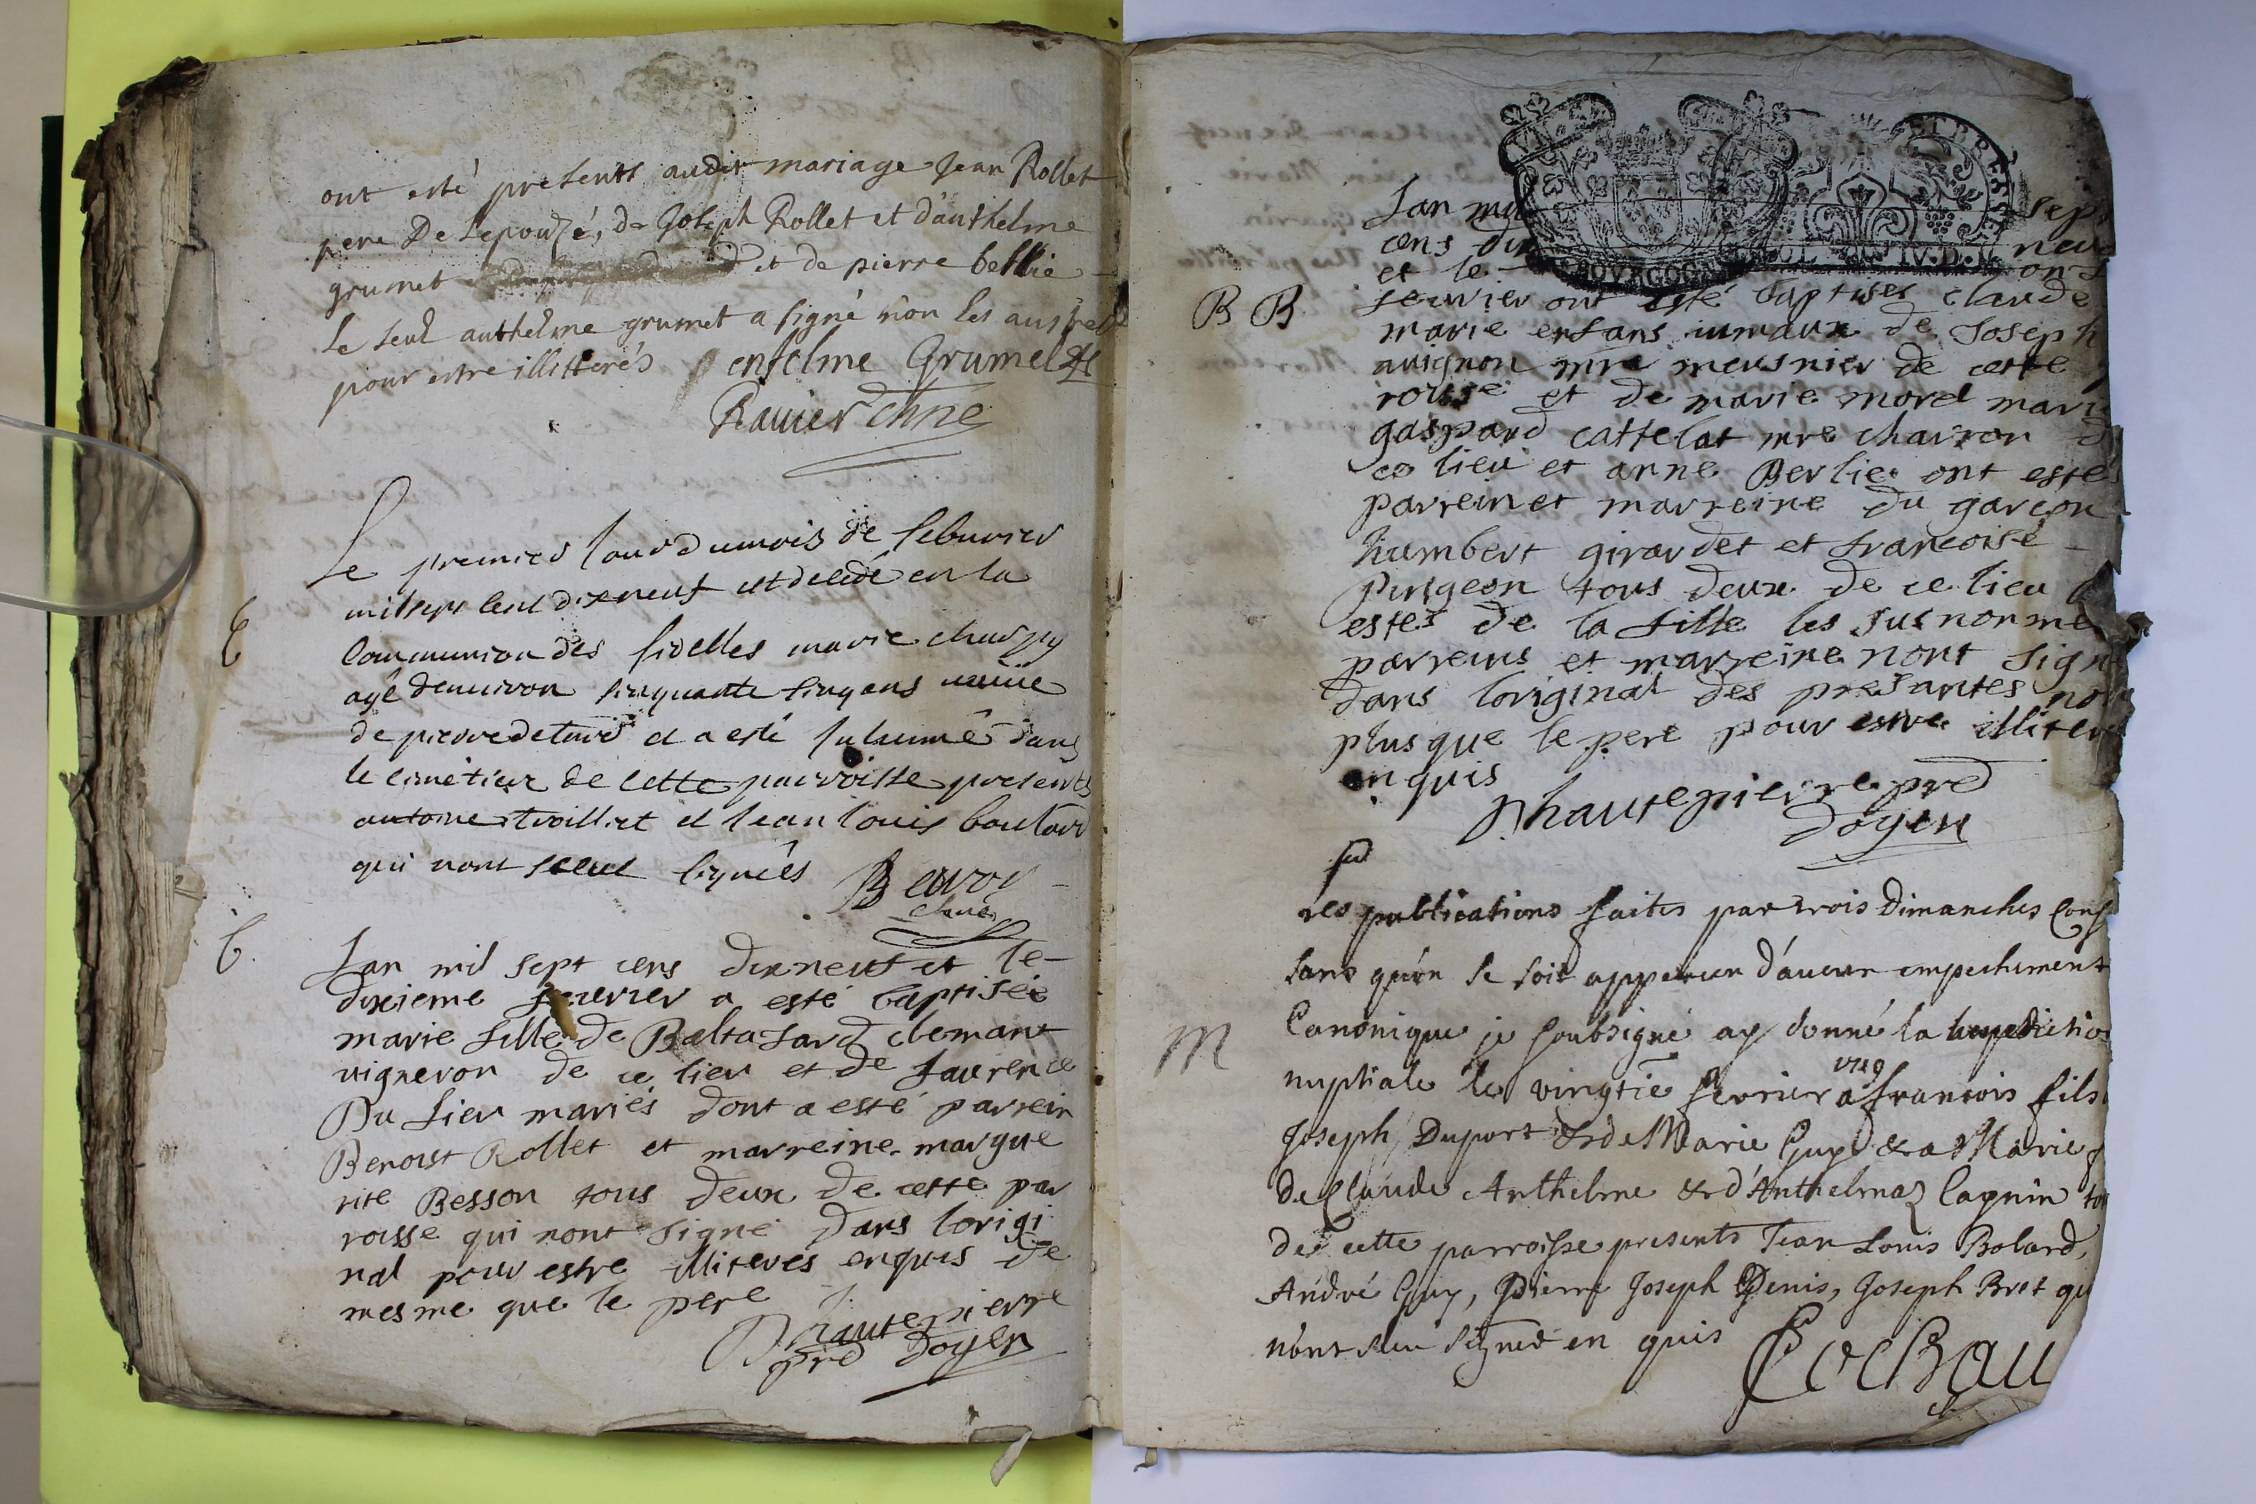 ont esté presents audit mariage Jean Rollet
pere De Lepouzé, de Joseph Rollet et d'anthelme
grumet et de pierre bellie
le seul anthelme grumet a signé non les autres
pour estre illitterés enselme Grumet
Ravier chne
Le premier Jour du mois de febvrier
mil sept cent dixneuf est decedé en la
E
Communion des fidelles marie charpy
agé denviron sinquante sinq ans
de pierre et a esté Inhumé dans
le cimetiere de cette parroisse presents
antoine troillet et Jean louis boulard
qui nont sceut signés
chne
B.
Lan mil sept cens dixneuf et le
dixieme feuvrier a esté baptisée
marie fille de Baltasard clemant
vigneron de ce lieu et de Laurence
Du Lieu mariés dont a esté parrein
Benoist Rollet et marreine margue
rite Besson tous deux de cette par
roisse qui nont signé dans lorigi
nal pour estre illiterés enquis de
mesme que le pere
P hautepierre
pre Doyen
Lan mil sept
cens dix neuf
et le on
B B
feuvrier ont esté baptises claude
marie enfans iumaux de Joseph
avignon mre meusnier de cette
roisse et de marie morel mari
gaspard cattelat mre charron d
ce lieu et anne Berlie ont estés
parrein et marreine du garçon
humbert girardet et francoise
Pingeon tous deux de ce lieu
estes de la fille les susnommé
parreins et marreine nont signé
dans loriginal des presantes non
plus que le pere pour estre illiteré
enquis
P hautepierre pre
Doyen
les publications faites par trois Dimanches Cons
sans qu'on se soit apperceu d'aucun empechement
M
Canonique je soubsigné ay donné la benedictio
1719
nuptiale le vingtie fevrier a francois fils
Joseph Duport & de Marie Guy & a Marie f
de Claude Anthelme & d'Anthelmaz Cagnin to
de cette parroisse presents Jean Louis Bolard,
André Guy, Pierre Joseph Denis, Joseph Bret qu
n'ont sceu signer en quis Cochau